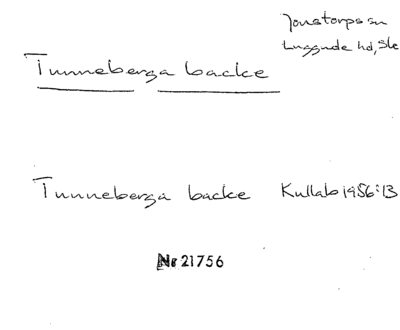 Jonstorps sn
Luggude hd, Sk
Tunneberga backe
Tunneberga backe Kullab 1956:13
Nr 21756